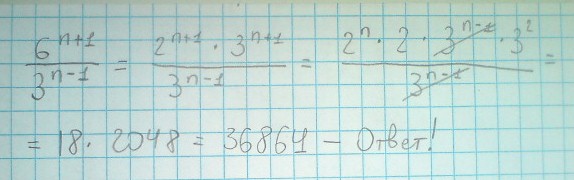 6^{n+1} / 3^{n-1} = 2^{n+1} · 3^{n+1} / 3^{n-1} = 2^n · 2 · 3^{n-1} · 3^2 / 3^{n-1} =
= 18 · 2048 = 36864 – Ответ!